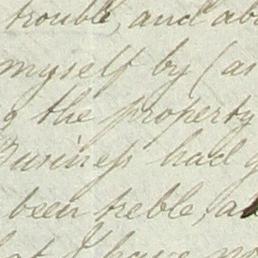 trouble, and ab
myself by (as
g the property
Business had g
been treble, a
at I have no